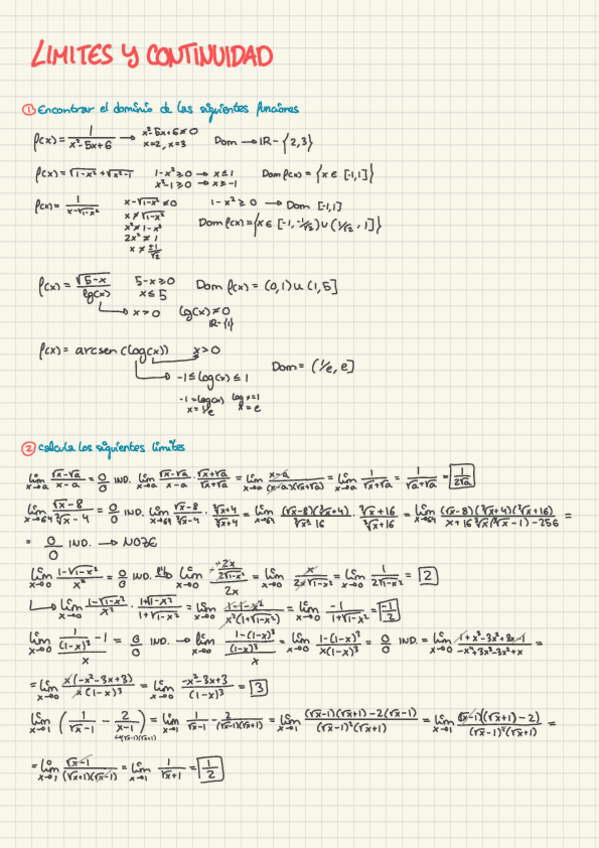 LIMITES y CONTINUIDAD
① Encontrar el dominio de las siguientes funciones
f(x) = 1/(x²-5x+6) → x²-5x+6≠0 x=2, x=3 Dom → IR - {2,3}
f(x) = √(1-x²) + √(x²-1) 1-x²≥0 → x≤1 x²-1≥0 → x≥-1 Dom f(x) = {x ∈ [-1,1]}
f(x) = 1/(x-√(1-x²)) x-√(1-x²)≠0 1-x²≥0 → Dom [-1,1]
x≠√(1-x²)
x²≠1-x² Dom f(x) = {x ∈ [-1,-1/√2) ∪ (1/√2, 1]}
2x²≠1
x≠±1/√2
f(x) = √(5-x)/log(x) 5-x≥0 x≤5 Dom f(x) = (0,1) ∪ (1,5]
→ x>0 log(x)≠0
IR-{1}
f(x) = arcsen(log(x)) x>0
→ -1≤log(x)≤1 Dom = (1/e, e]
-1=log(x) log x=1
x=1/e x=e
② calcula los siguientes limites
lim x→a (√x-√a)/(x-a) = 0/0 IND. lim x→a (√x-√a)/(x-a) · (√x+√a)/(√x+√a) = lim x→a (x-a)/((x-a)(√x+√a)) = lim x→a 1/(√x+√a) = 1/(√a+√a) = 1/(2√a)
lim x→64 (√x-8)/(∛x-4) = 0/0 IND. lim x→64 (√x-8)/(∛x-4) · (∛x+4)/(∛x+4) = lim x→64 ((√x-8)(∛x+4))/(∛x² 16) · (∛x+16)/(∛x+16) = lim x→64 ((√x-8)(∛x+4)(∛x+16))/(x+16∛x(∛x-1)-256) =
= 0/0 IND. → NOZE
lim x→0 (1-√(1-x²))/x² = 0/0 IND. → lim x→0 (-2x/(2√(1-x²)))/2x = lim x→0 x/(2x√(1-x²)) = lim x→0 1/(2√(1-x²)) = 2
→ lim x→0 (1-√(1-x²))/x² · (1+√(1-x²))/(1+√(1-x²)) = lim x→0 (1-1-x²)/(x²(1+√(1-x²))) = lim x→0 -1/(1+√(1-x²)) = -1/2
lim x→0 (1/(1-x)³ - 1)/x = 0/0 IND. → lim x→0 ((1-(1-x)³)/(1-x)³)/x = lim x→0 (1-(1-x)³)/(x(1-x)³) = 0/0 IND. = lim x→0 (1+x³-3x²+3x-1)/(-x⁴+3x³-3x²+x) =
= lim x→0 x(-x²-3x+3)/(x(1-x)³) = lim x→0 (-x²-3x+3)/(1-x)³ = 3
lim x→1 (1/(√x-1) - 2/(x-1)) = lim x→1 1/(√x-1) - 2/((√x-1)(√x+1)) = lim x→1 ((√x-1)(√x+1)-2(√x-1))/((√x-1)²(√x+1)) = lim x→1 ((√x-1)((√x+1)-2))/((√x-1)²(√x+1)) =
→(√x-1)(√x+1)
= lim x→1 (√x-1)/((√x+1)(√x-1)) = lim x→1 1/(√x+1) = 1/2